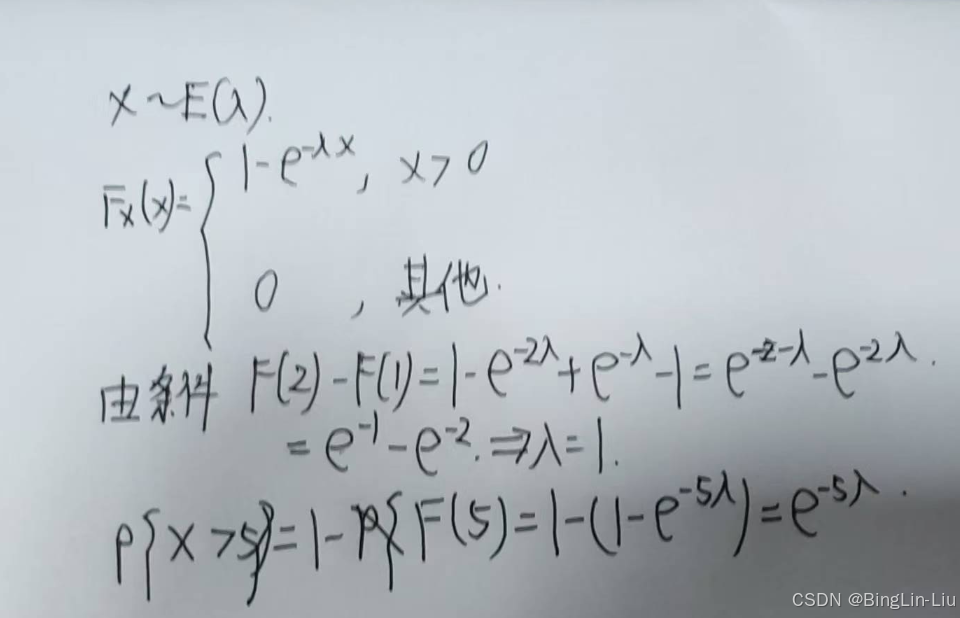 X~E(λ).
F_X(x)={1-e^{-λx}, x>0
0, 其他.
由条件 F(2)-F(1)=1-e^{-2λ}+e^{-λ}-1=e^{-λ}-e^{-2λ}.
=e^{-1}-e^{-2}.⇒λ=1.
P{X>5}=1-F(5)=1-(1-e^{-5λ})=e^{-5λ}.
CSDN @BingLin-Liu